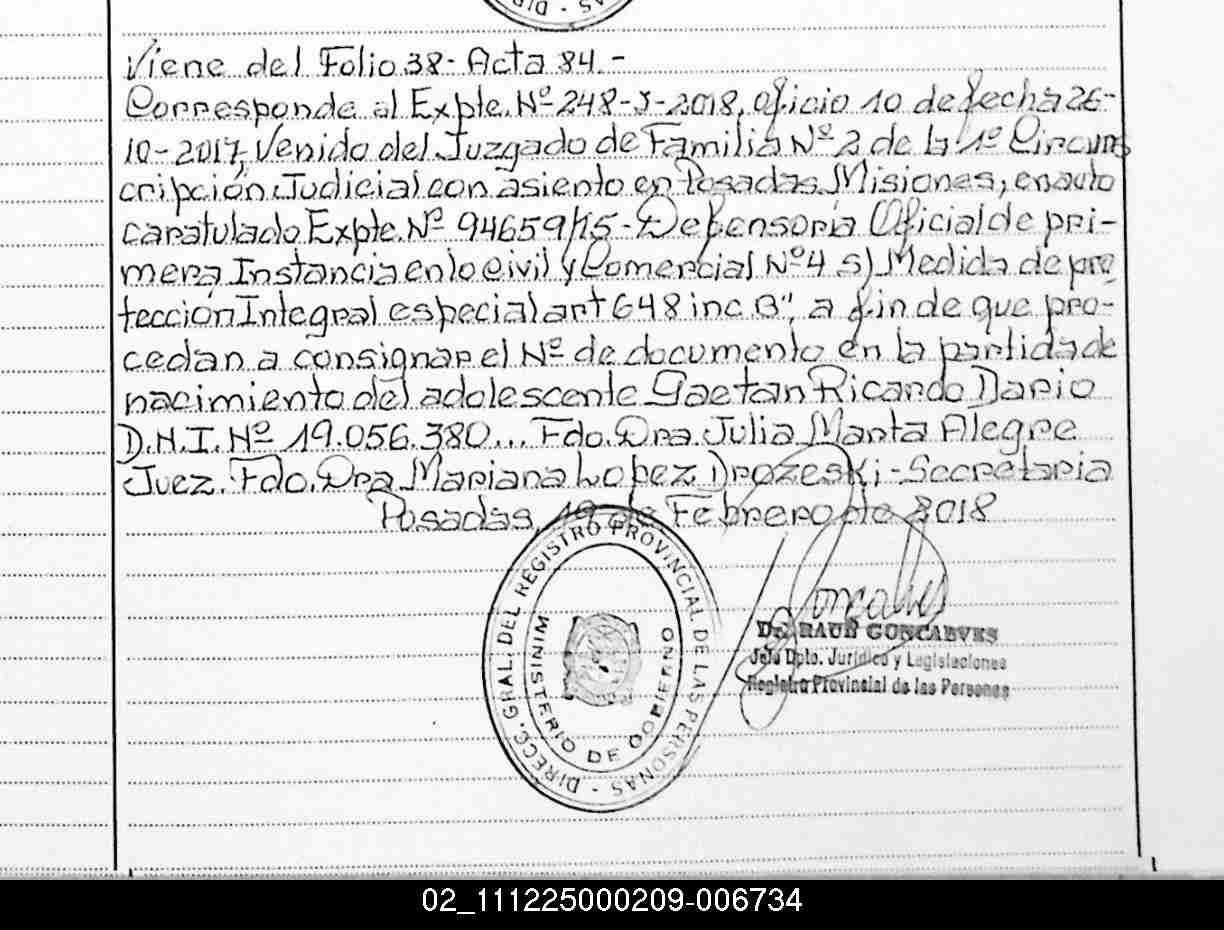 Viene del Folio 38- Acta 84.-
Corresponde al Expte. Nº 248-J-2018, oficio 10 de fecha 26-
10-2017, Venido del Juzgado de Familia Nº 2 de la 1º Circuns
cripción Judicial con asiento en Posadas, Misiones, en auto
caratulado Expte. Nº 94659/15 - Defensoría Oficial de pri-
mera Instancia en lo Civil y Comercial Nº 4 s/ Medida de pro
tección Integral especial art 648 inc B", a fin de que pro-
cedan a consignar el Nº de documento en la partida de
nacimiento del adolescente Gaetan Ricardo Dario
D.N.I. Nº 19.056.380... Fdo. Dra. Julia Marta Alegre
Juez. Fdo. Dra Mariana Lopez Drozeski - Secretaria
Posadas, 19 de Febrero de 2018
DIRECC. GRAL. DEL REGISTRO PROVINCIAL DE LAS PERSONAS -
MINISTERIO DE GOBIERNO
Dr. RAUL GONCALVES
Jefe Dpto. Jurídico y Legislaciones
Registro Provincial de las Personas
02_111225000209-006734